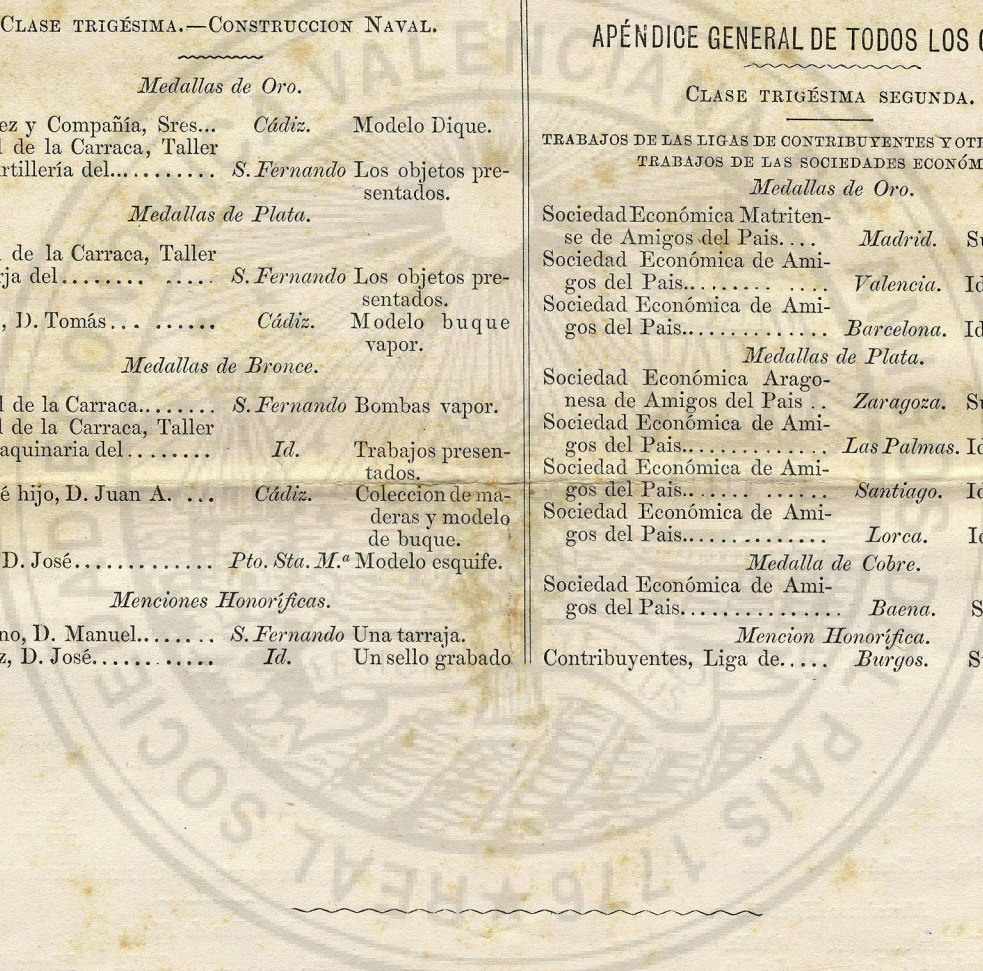 CLASE TRIGÉSIMA.—CONSTRUCCION NAVAL.
Medallas de Oro.
ez y Compañía, Sres... Cádiz. Modelo Dique.
l de la Carraca, Taller
rtillería del.......... S. Fernando Los objetos pre-
sentados.
Medallas de Plata.
l de la Carraca, Taller
rja del........ ..... S. Fernando Los objetos pre-
sentados.
, D. Tomás... ....... Cádiz. Modelo buque
vapor.
Medallas de Bronce.
l de la Carraca........ S. Fernando Bombas vapor.
l de la Carraca, Taller
aquinaria del........ Id. Trabajos presen-
tados.
é hijo, D. Juan A. ... Cádiz. Coleccion de ma-
deras y modelo
de buque.
D. José............. Pto. Sta. M.ª Modelo esquife.
Menciones Honoríficas.
no, D. Manuel........ S. Fernando Una tarraja.
z, D. José............ Id. Un sello grabado
APÉNDICE GENERAL DE TODOS LOS
CLASE TRIGÉSIMA SEGUNDA.
TRABAJOS DE LAS LIGAS DE CONTRIBUYENTES Y OT
TRABAJOS DE LAS SOCIEDADES ECONÓM
Medallas de Oro.
Sociedad Económica Matriten-
se de Amigos del Pais.... Madrid. S
Sociedad Económica de Ami-
gos del Pais......... .... Valencia. Id
Sociedad Económica de Ami-
gos del Pais.............. Barcelona. Id
Medallas de Plata.
Sociedad Económica Arago-
nesa de Amigos del Pais .. Zaragoza. S
Sociedad Económica de Ami-
gos del Pais.............. Las Palmas. Id
Sociedad Económica de Ami-
gos del Pais.. ...... ...... Santiago. Id
Sociedad Económica de Ami-
gos del Pais.............. Lorca. Id
Medalla de Cobre.
Sociedad Económica de Ami-
gos del Pais............... Baena. S
Mencion Honorífica.
Contribuyentes, Liga de..... Burgos. S
REAL SOCIEDAD ECONÓMICA VALENCIANA AMIGOS DEL PAIS 1776